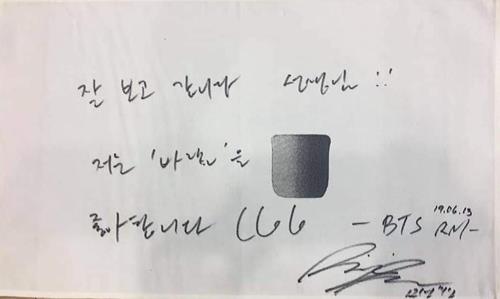 잘 보고 갑니다 선생님 !!
저는 '바람'을
좋아합니다
19.06.13
- BTS RM -